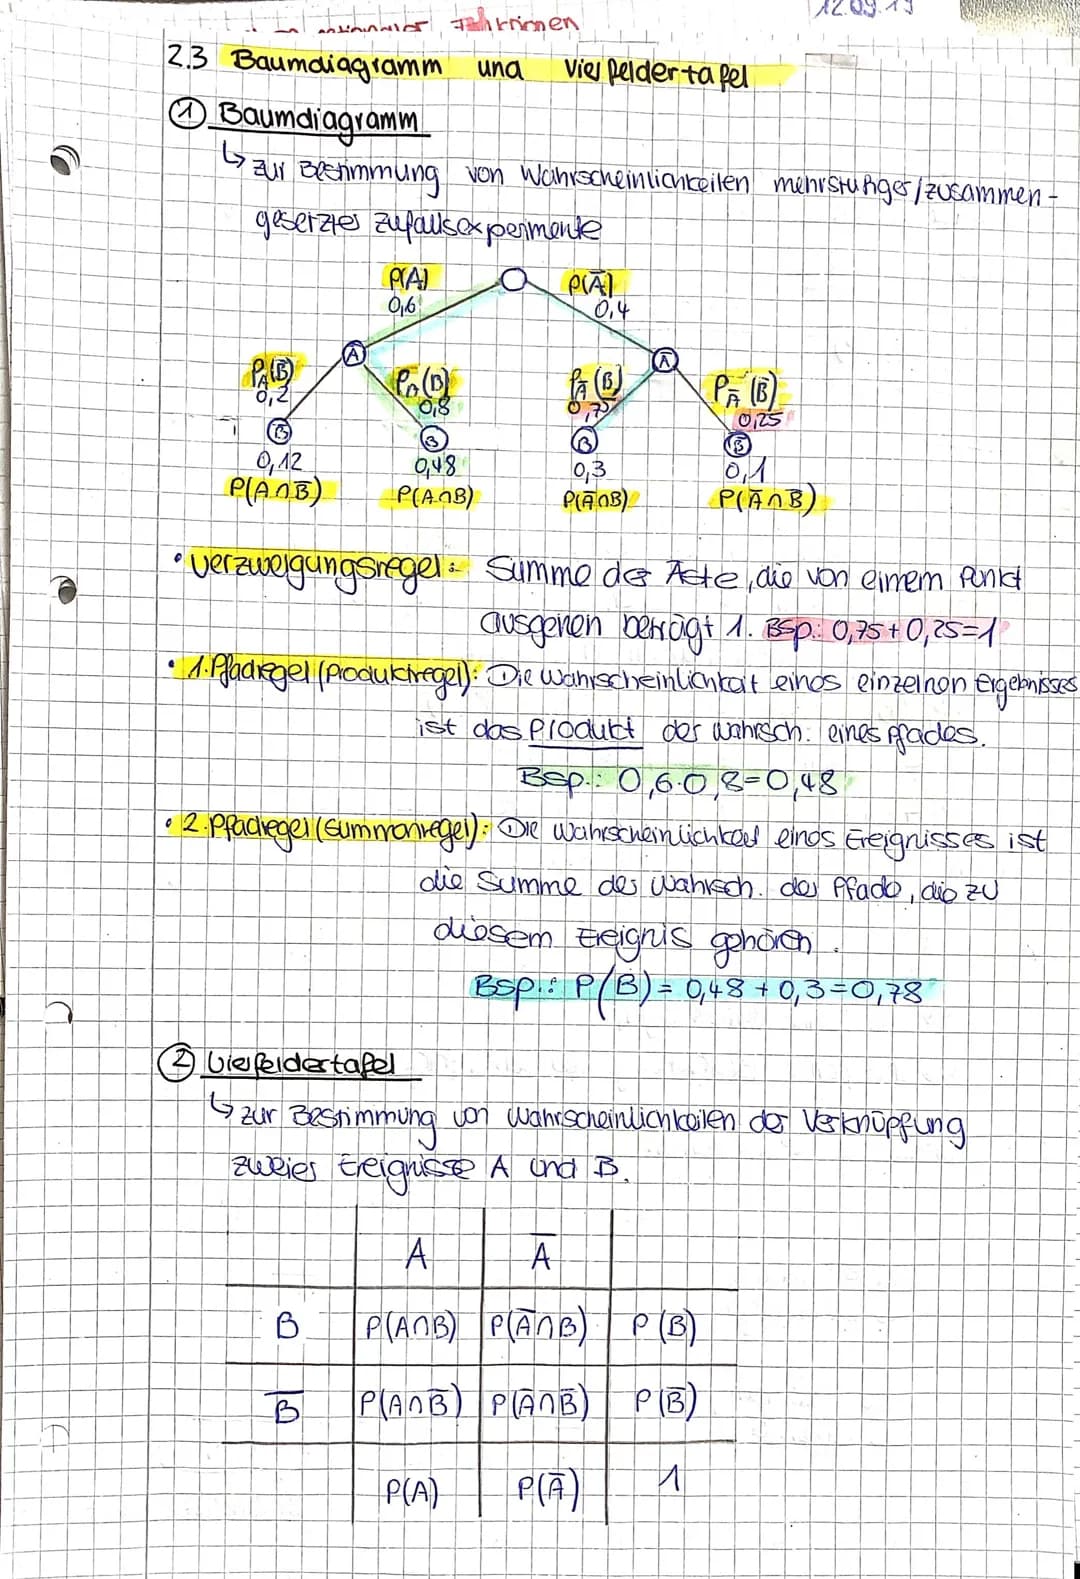 12.09.19
2.3 Baumdiagramm und Vierfeldertafel
① Baumdiagramm
↳ zur Bestimmung von Wahrscheinlichkeiten mehrstufiger/zusammen-
gesetztes Zufallsexperimente
P(A) P(Ā)
0,6 0,4
A Ā
P_A(B̅) P_A(B) P_Ā(B) P_Ā(B̅)
0,2 0,8 0,75 0,25
B̅ B B B̅
0,12 0,48 0,3 0,1
P(A∩B̅) P(A∩B) P(Ā∩B) P(Ā∩B̅)
• Verzweigungsregel: Summe der Äste, die von einem Punkt
ausgehen beträgt 1. Bsp.: 0,75+0,25=1
• 1. Pfadregel (Produktregel): Die Wahrscheinlichkeit eines einzelnen Ergebnisses
ist das Produkt der Wahrsch. eines Pfades.
Bsp.: 0,6·0,8=0,48
• 2. Pfadregel (Summenregel): Die Wahrscheinlichkeit eines Ereignisses ist
die Summe der Wahrsch. der Pfade, die zu
diesem Ereignis gehören.
Bsp.: P(B)=0,48+0,3=0,78
② Vierfeldertafel
↳ zur Bestimmung von Wahrscheinlichkeiten der Verknüpfung
zweier Ereignisse A und B.
A Ā
B P(A∩B) P(Ā∩B) P(B)
B̅ P(A∩B̅) P(Ā∩B̅) P(B̅)
P(A) P(Ā) 1